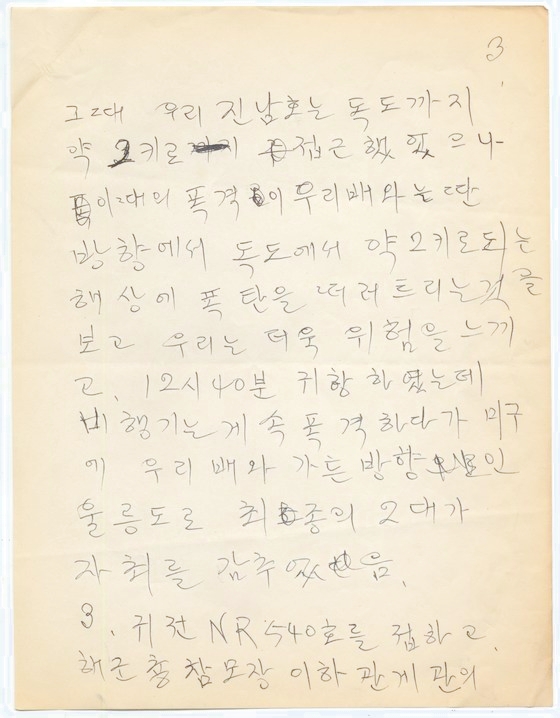 3
그때 우리 진남호는 독도까지
약 2키로 접근 했 었 으나
이때의 폭격 이 우리배와는 딴
방향에서 독도에서 약 2키로되는
해상에 폭탄을 떠러트리는것을
보고 우리는 더욱 위험을 느끼
고, 12시 40분 귀항 하였는데
비행기는 계속 폭격하다가
우리 배와 가튼 방향 인
울릉도로 최종의 2대가
자최를 감추었음.
3. 귀전 NR 540호를 접하고,
해군 총참모장 이하 관계관의